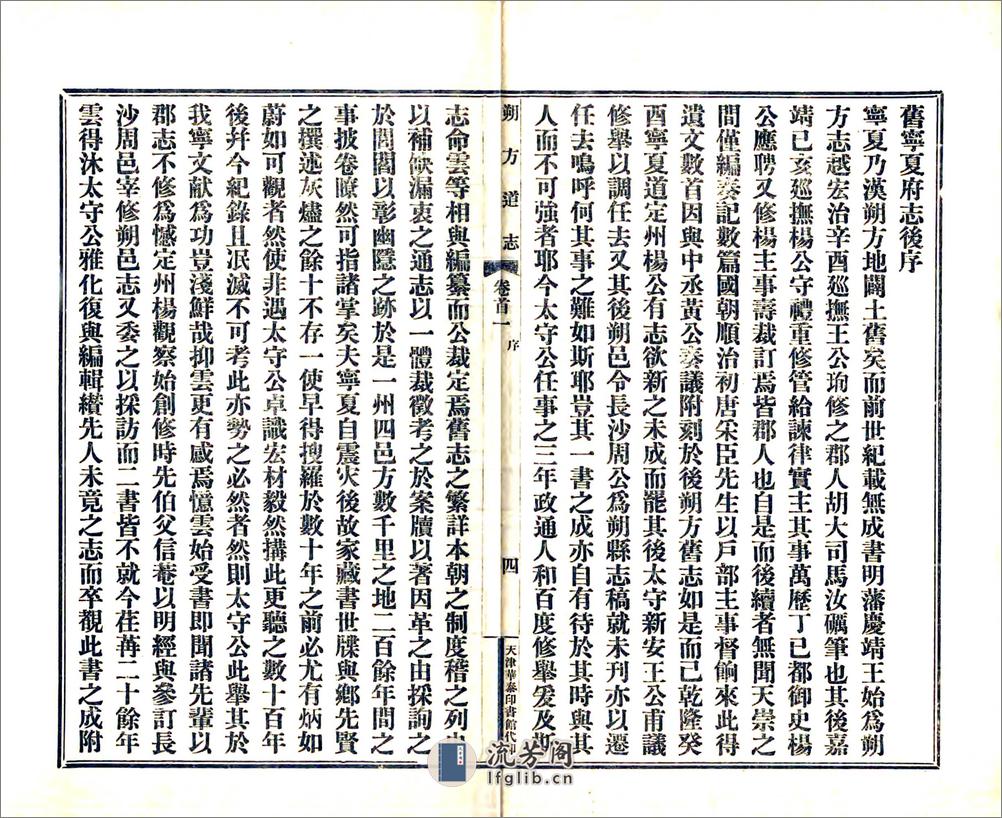 舊寧夏府志後序
寧夏乃漢朔方地闢土舊矣而前世紀載無成書明藩慶靖王始爲朔
方志越宏治辛酉巡撫王公珣修之郡人胡大司馬汝礪筆也其後嘉
靖己亥巡撫楊公守禮重修管給諫律實主其事萬歷丁巳都御史楊
公應聘又修楊主事壽裁訂焉皆郡人也自是而後續者無聞天崇之
間僅編奏記數篇國朝順治初唐采臣先生以戶部主事督餉來此得
遺文數首因與中丞黃公奏議附刻於後朔方舊志如是而已乾隆癸
酉寧夏道定州楊公有志欲新之未成而罷其後太守新安王公甫議
修舉以調任去又其後朔邑令長沙周公爲朔縣志稿就未刊亦以遷
任去嗚呼何其事之難如斯耶豈其一書之成亦自有待於其時與其
人而不可強者耶今太守公任事之三年政通人和百度修舉爰及斯
朔方道志
卷首一
序
四
天津華泰印書館代印
志命雲等相與編纂而公裁定焉舊志之繁詳本朝之制度稽之列史
以補缺漏衷之通志以一體裁徵考之於案牘以著因革之由採詢之
於閭閻以彰幽隱之跡於是一州四邑方數千里之地二百餘年間之
事披卷瞭然可指諸掌矣夫寧夏自震火後故家藏書世牒與鄉先賢
之撰述灰燼之餘十不存一使早得搜羅於數十年之前必尤有炳如
蔚如可觀者然使非遇太守公卓識宏材毅然搆此更聽之數十百年
後幷今紀錄且泯滅不可考此亦勢之必然者然則太守公此舉其於
我寧文獻爲功豈淺鮮哉抑雲更有感焉憶雲始受書即聞諸先輩以
郡志不修爲憾定州楊觀察始創修時先伯父信菴以明經與參訂長
沙周邑宰修朔邑志又委之以採訪而二書皆不就今荏苒二十餘年
雲得沐太守公雅化復與編輯纘先人未竟之志而卒覩此書之成附
流芳阁
lfglib.cn